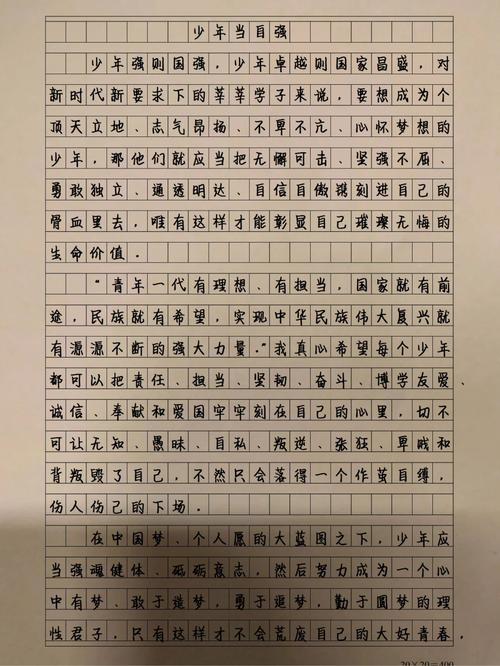 少年当自强
少年强则国强，少年卓越则国家昌盛，对
新时代新要求下的莘莘学子来说，要想成为个
顶天立地、志气昂扬、不卑不亢、心怀梦想的
少年，那他们就应当把无懈可击、坚强不屈、
勇敢独立、通透明达、自信自傲镌刻进自己的
骨血里去，唯有这样才能彰显自己璀璨无悔的
生命价值.
“青年一代有理想、有担当，国家就有前
途，民族就有希望，实现中华民族伟大复兴就
有源源不断的强大力量.”我真心希望每个少年
都可以把责任、担当、坚韧、奋斗、博学友爱、
诚信、奉献和爱国牢牢刻在自己的心里，切不
可让无知、愚昧、自私、叛逆、张狂、卑贱和
背叛毁了自己，不然只会落得一个作茧自缚，
伤人伤己的下场.
在中国梦、个人愿的大蓝图之下，少年应
当强魂健体、砥砺意志，然后努力成为一个心
中有梦、敢于造梦，勇于追梦，勤于圆梦的理
性君子，只有这样才不会荒废自己的大好青春，
20×20=400